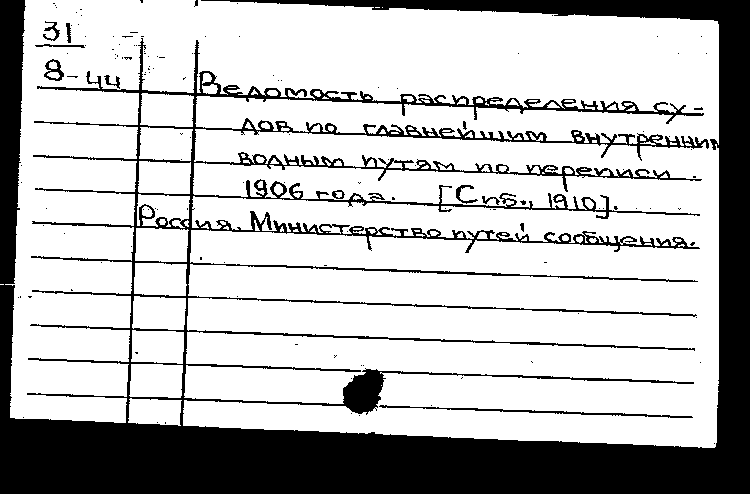 31
8-44
Ведомость распределения су-
дов по главнейшим внутренним
водным путям по переписи
1906 года. [Спб., 1910].
Россия. Министерство путей сообщения.